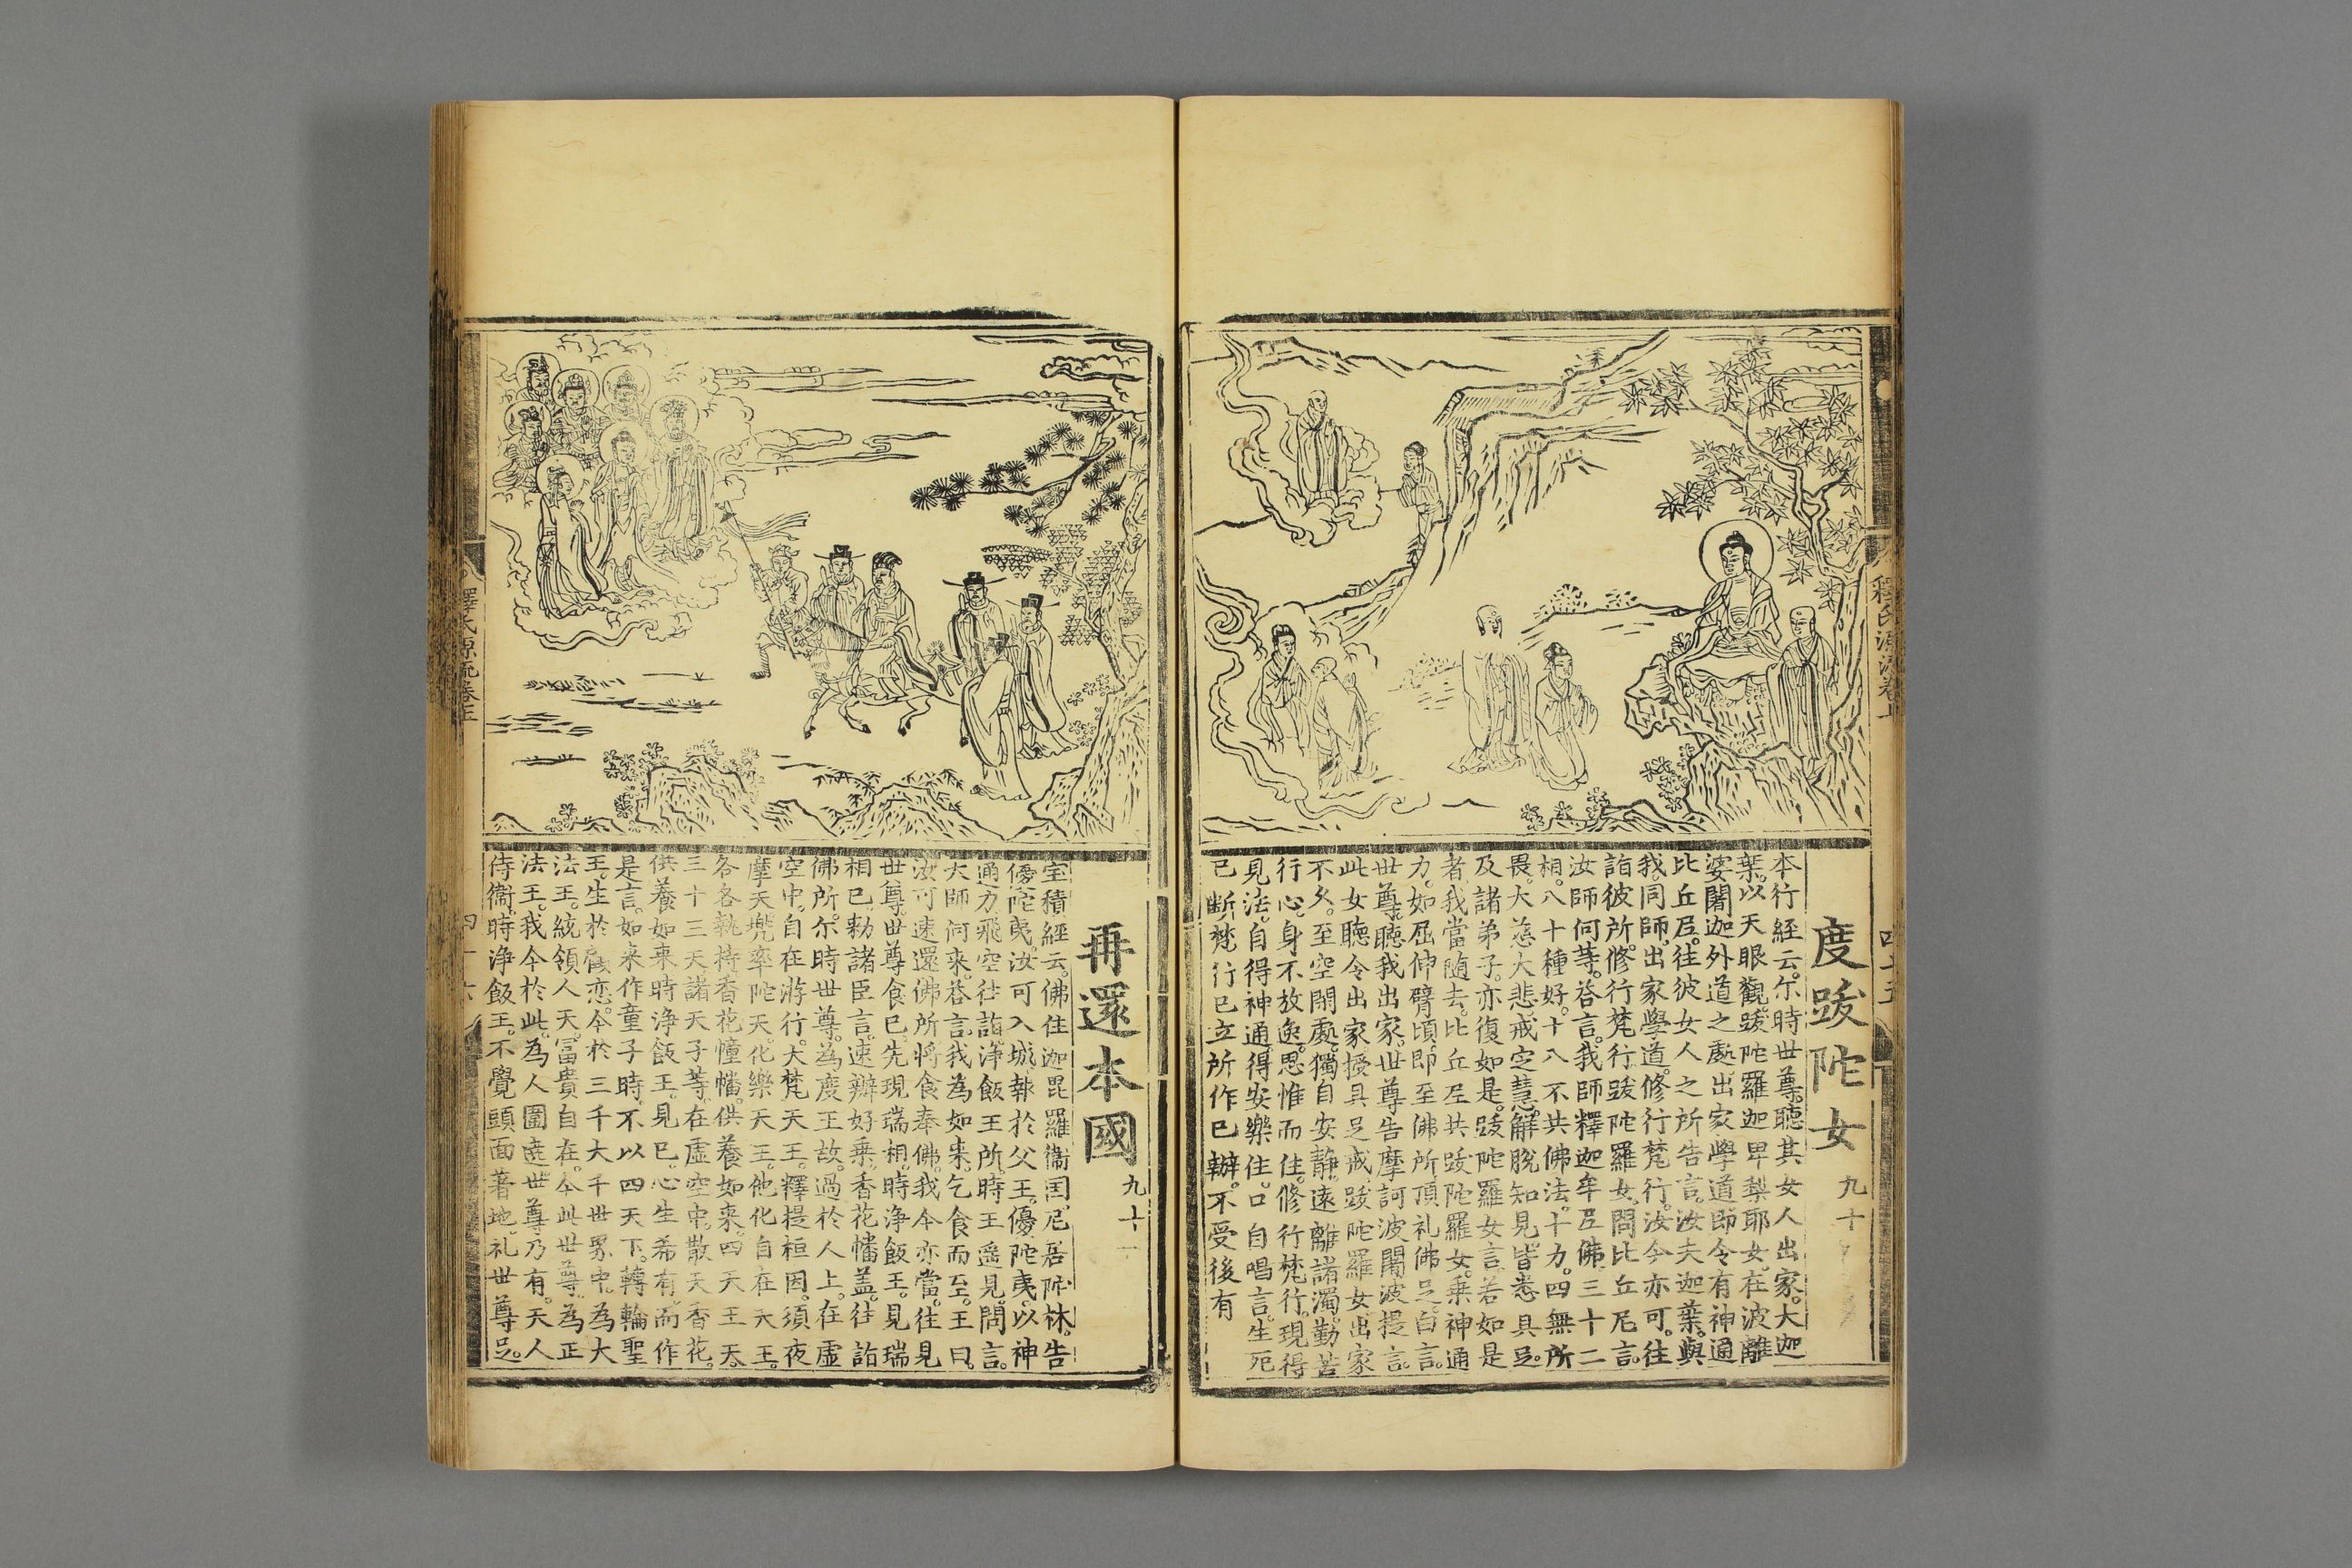 度跋陀女 九十
本行經云。尒時世尊。聽其女人出家。大迦
葉。以天眼觀。跋陀羅迦卑梨耶女。在波離
婆闍迦外道之處。出家學道。即令有神通
比丘尼。往彼女人之所告言。汝夫迦葉。與
我同師。出家學道。修行梵行。汝今亦可。往
詣彼所。修行梵行。跋陀羅女。問比丘尼言。
汝師何等。荅言。我師釋迦牟尼佛。三十二
相。八十種好。十八不共佛法。十力。四無所
畏。大慈大悲。戒定慧。解脫知見。皆悉具足。
及諸弟子。亦復如是。跋陀羅女言。若如是
者。我當随去。比丘尼共跋陀羅女。乘神通
力。如屈伸臂頃。即至佛所。頂礼佛足。白言。
世尊。聽我出家。世尊告摩訶波闍波提言。
此女聽令出家。授具足戒。跋陀羅女。出家
不久。至空閑處。獨自安靜。遠離諸濁。勤苦
行心。身不放逸。思惟而住。修行梵行。現得
見法。自得神通。得安樂住。口自唱言。生死
已断。梵行已立。所作已辦。不受後有
再還本國 九十一
宝積經云。佛住迦毘羅衞国。尼居陁林。告
優陀夷。汝可入城。報於父王。優陀夷。以神
通力。飛空往詣。淨飯王所。時王遥見。問言。
大師何来。荅言。我為如来。乞食而至。王曰。
汝可速還。佛所将食奉佛。我今亦當。往見
世尊。世尊食已。先現瑞相。時淨飯王。見瑞
相已。勑諸臣言。速辦好乘。香花幡盖。往詣
佛所。尒時世尊。為度王故。過於人上。在虛
空中。自在游行。大梵天王。釋提桓因。須夜
摩天。兠率陀天。化樂天王。他化自在天王。
各各執持。香花幢幡。供養如来。四天王天。
三十三天。諸天子等。在虛空中。散天香花。
供養如来。時淨飯王。見已。心生希有。而作
是言。如来作童子時。不以四天下。轉輪聖
王。生於顧恋。今於三千大千世界中。為大
法王。統領人天。冨貴自在。今此世尊。為正
法王。我今於此。為人圍遶。世尊乃有。天人
侍衞。時淨飯王。不覺頭面著地。礼世尊足。
釋氏源流卷上